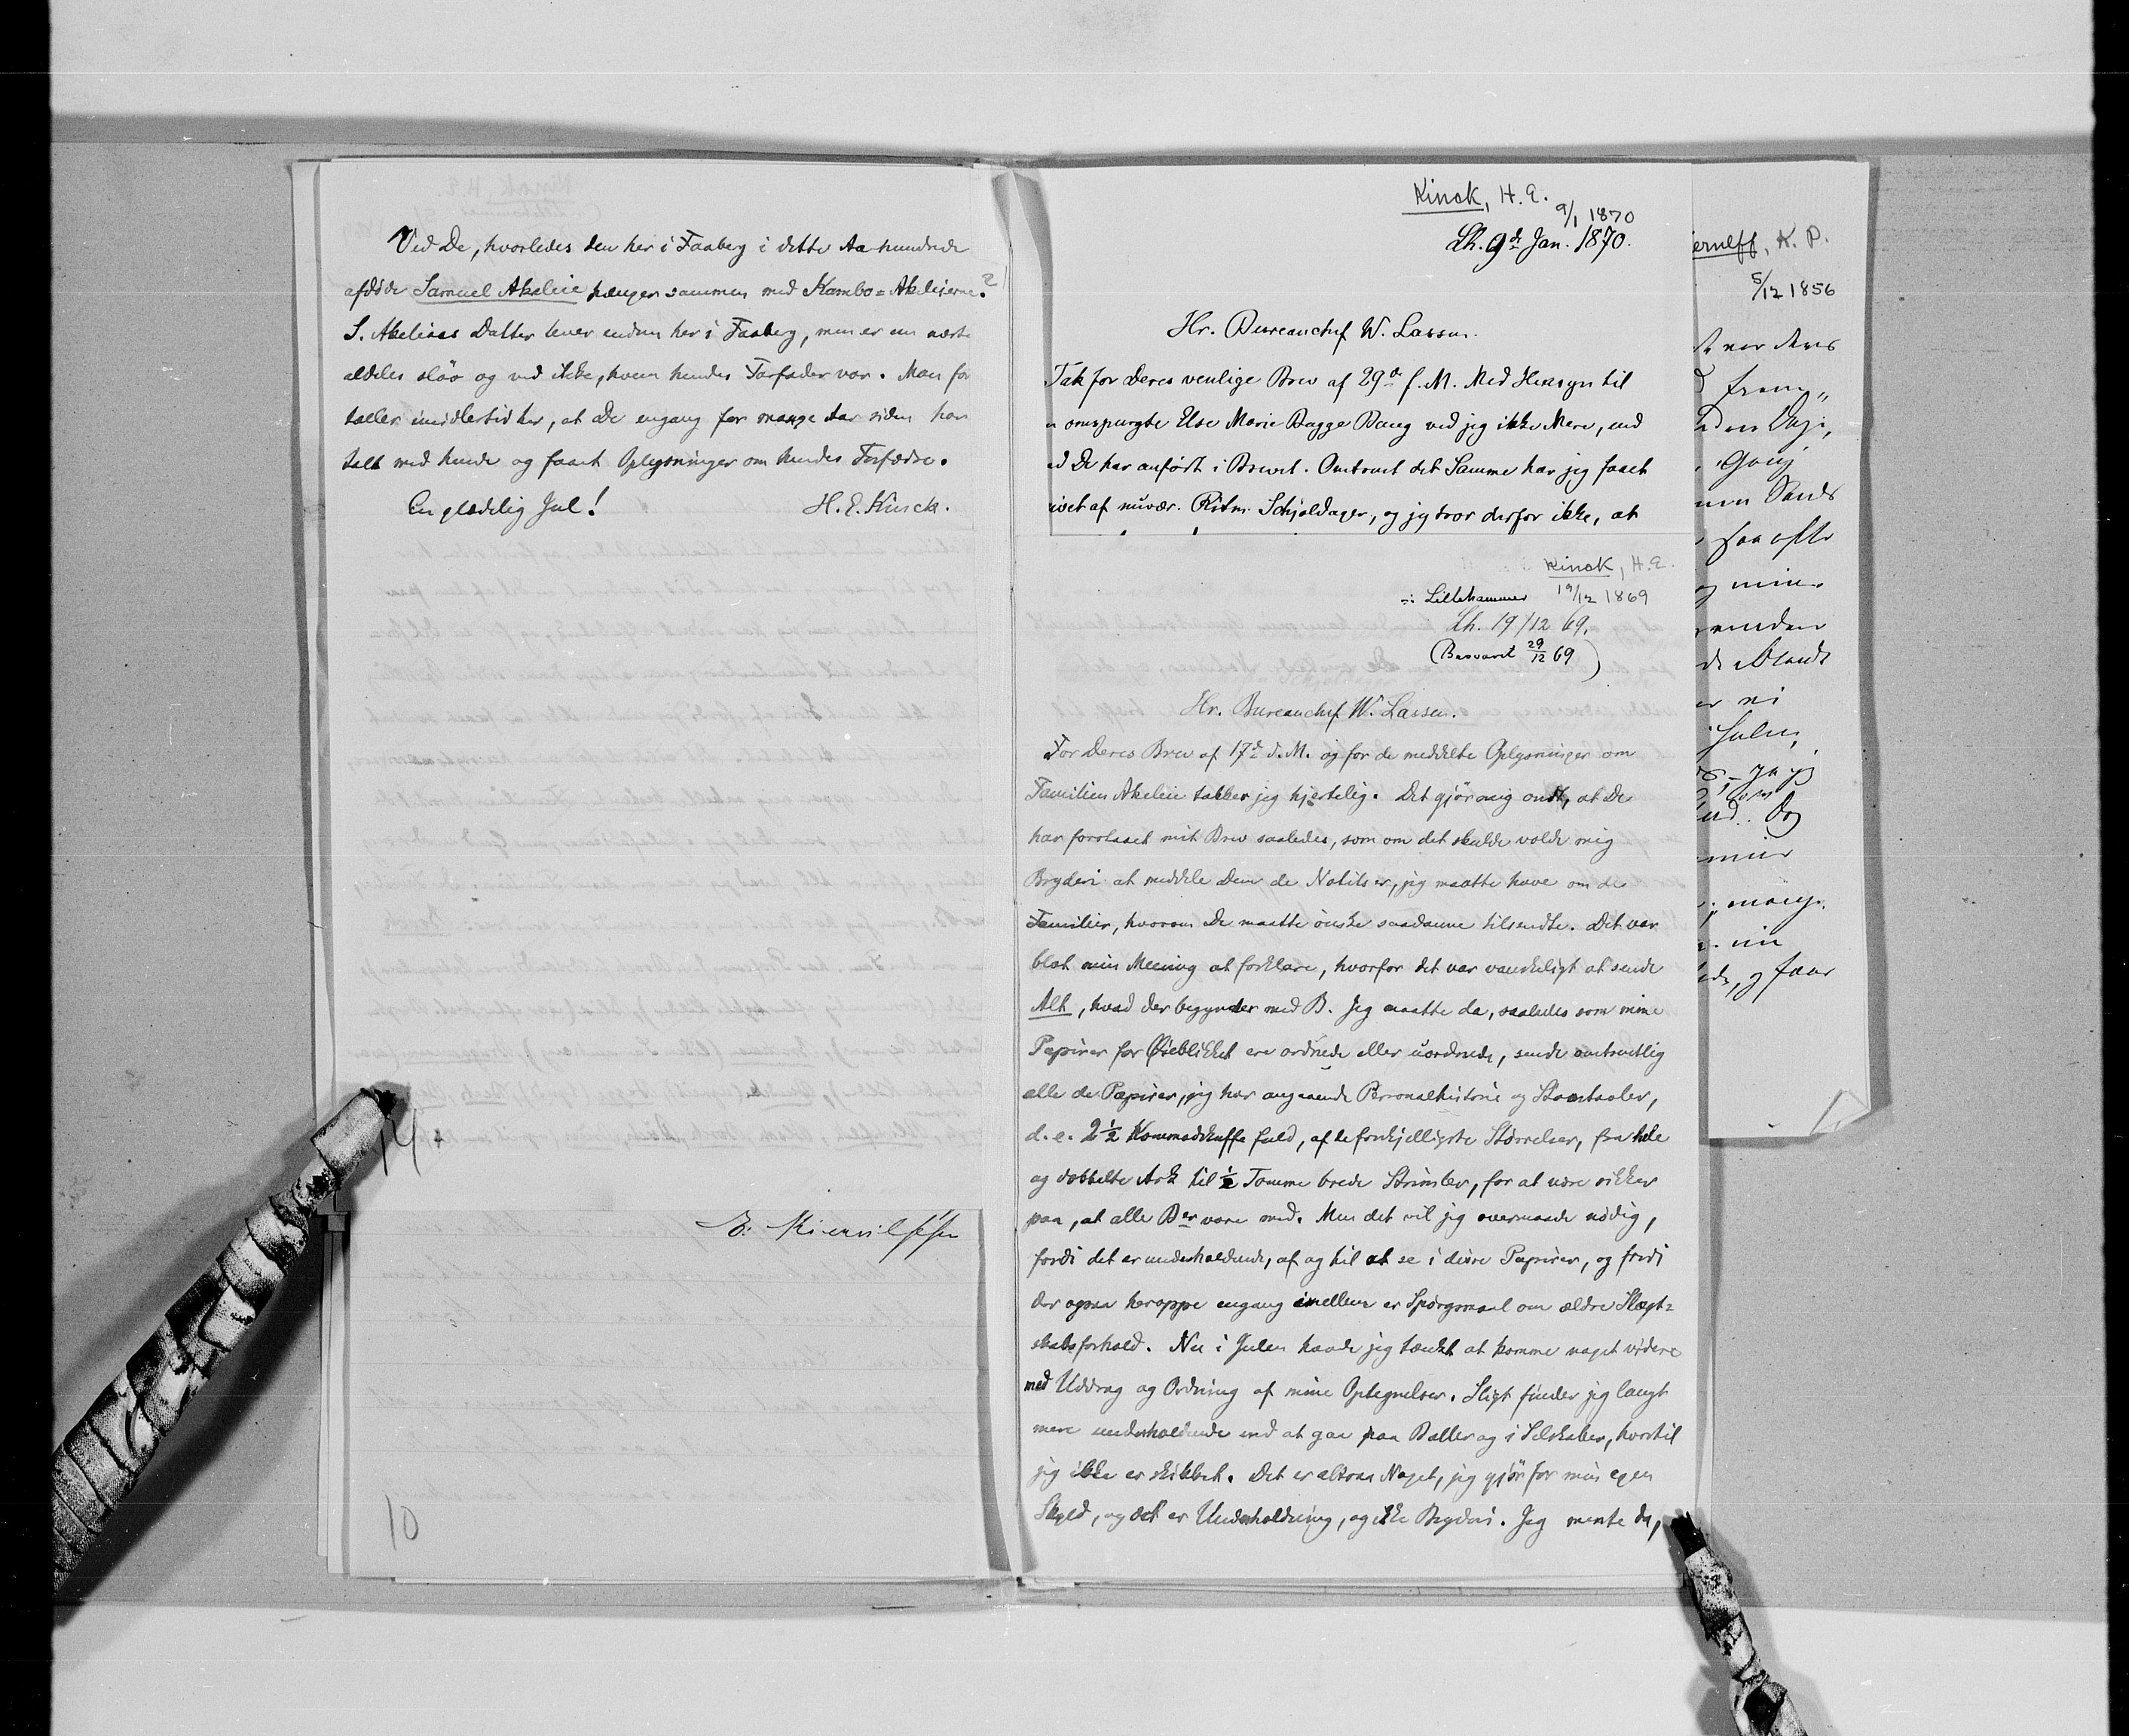 Ved De, hvorledes den her i Faaberg i dette Aarhundrede
afdöde Samuel Akeleie hænger sammen med Kambo=Akeleierne?
S. Akeleies Datter lever endnu her i Faaberg, men er nu næsten
aldeles slöv og ved ikke, hvem hendes Farfader var. Man for
tæller imidlertid her, at De engang for mange Aar siden har
talt med hende og faaet Oplysninger om hendes Forfædre.
En glædelig Jul! H. E. Kinck.
14
10
Kinck, H. E.
9/1 1870
Lh. 9de Jan. 1870.
Hr. Bureauchef W. Lassen.
Tak for Deres venlige Brev af 29de f. M. Med Hensyn til
omspurgte Else Marie Bagge Bang ved jeg ikke Mere, end
De har anført i Brevet. Omtrent det Samme har jeg faaet
af nuvær. Ritm. Schjøldager, og jeg tror derfor ikke, at
Kinck, H. E.
Lillehammer 19/12 1869
Lh. 19/12 69.
(Besvaret 29/12 69)
Hr. Bureauchef W. Lassen.
For Deres Brev af 17de d. M. og for de meddelte Oplysninger om
Familien Akeleie takker jeg hjertelig. Det gjör mig ondt, at De
har forstaaet mit Brev saaledes, som om det skulde volde mig
Bryderi at meddele Dem de Notitser, jeg maatte have om de
Familier, hvorom De maatte önske saadanne tilsendte. Det var
blot min Mening at forklare, hvorfor det var vanskeligt at sende
Alt, hvad der begynder med B. Jeg maatte da, saaledes som mine
Papirer for Øieblikket ere ordnede eller uordnede, sende omtrentlig
alle de Papirer, jeg har angaaende Personalhistorie og Stamtavler,
d. e. 2½ Kommodskuffe fuld, af de forskjelligste Størrelser, fra hele
og dobbelte Ark til ½ Tomme brede Strimler, for at være sikker
paa, at alle Ber vare med. Men det vil jeg overmaade nödig,
fordi det er underholdende, af og til at se i disse Papirer, og fordi
der ogsaa heroppe engang imellem er Spörgsmaal om ældre Slægt=
skabsforhold. Nu i Julen havde jeg tænkt at komme noget videre
med Uddrag og Ordning af mine Optegnelser. Sligt finder jeg langt
mere underholdende end at gaa paa Baller og i Selskaber, hvortil
jeg ikke er skikket. Det er altsaa Noget, jeg gjör for min egen
Skyld, og det er Underholdning, og ikke Bryderi. Jeg mente da,
K. P.
5/12 1856